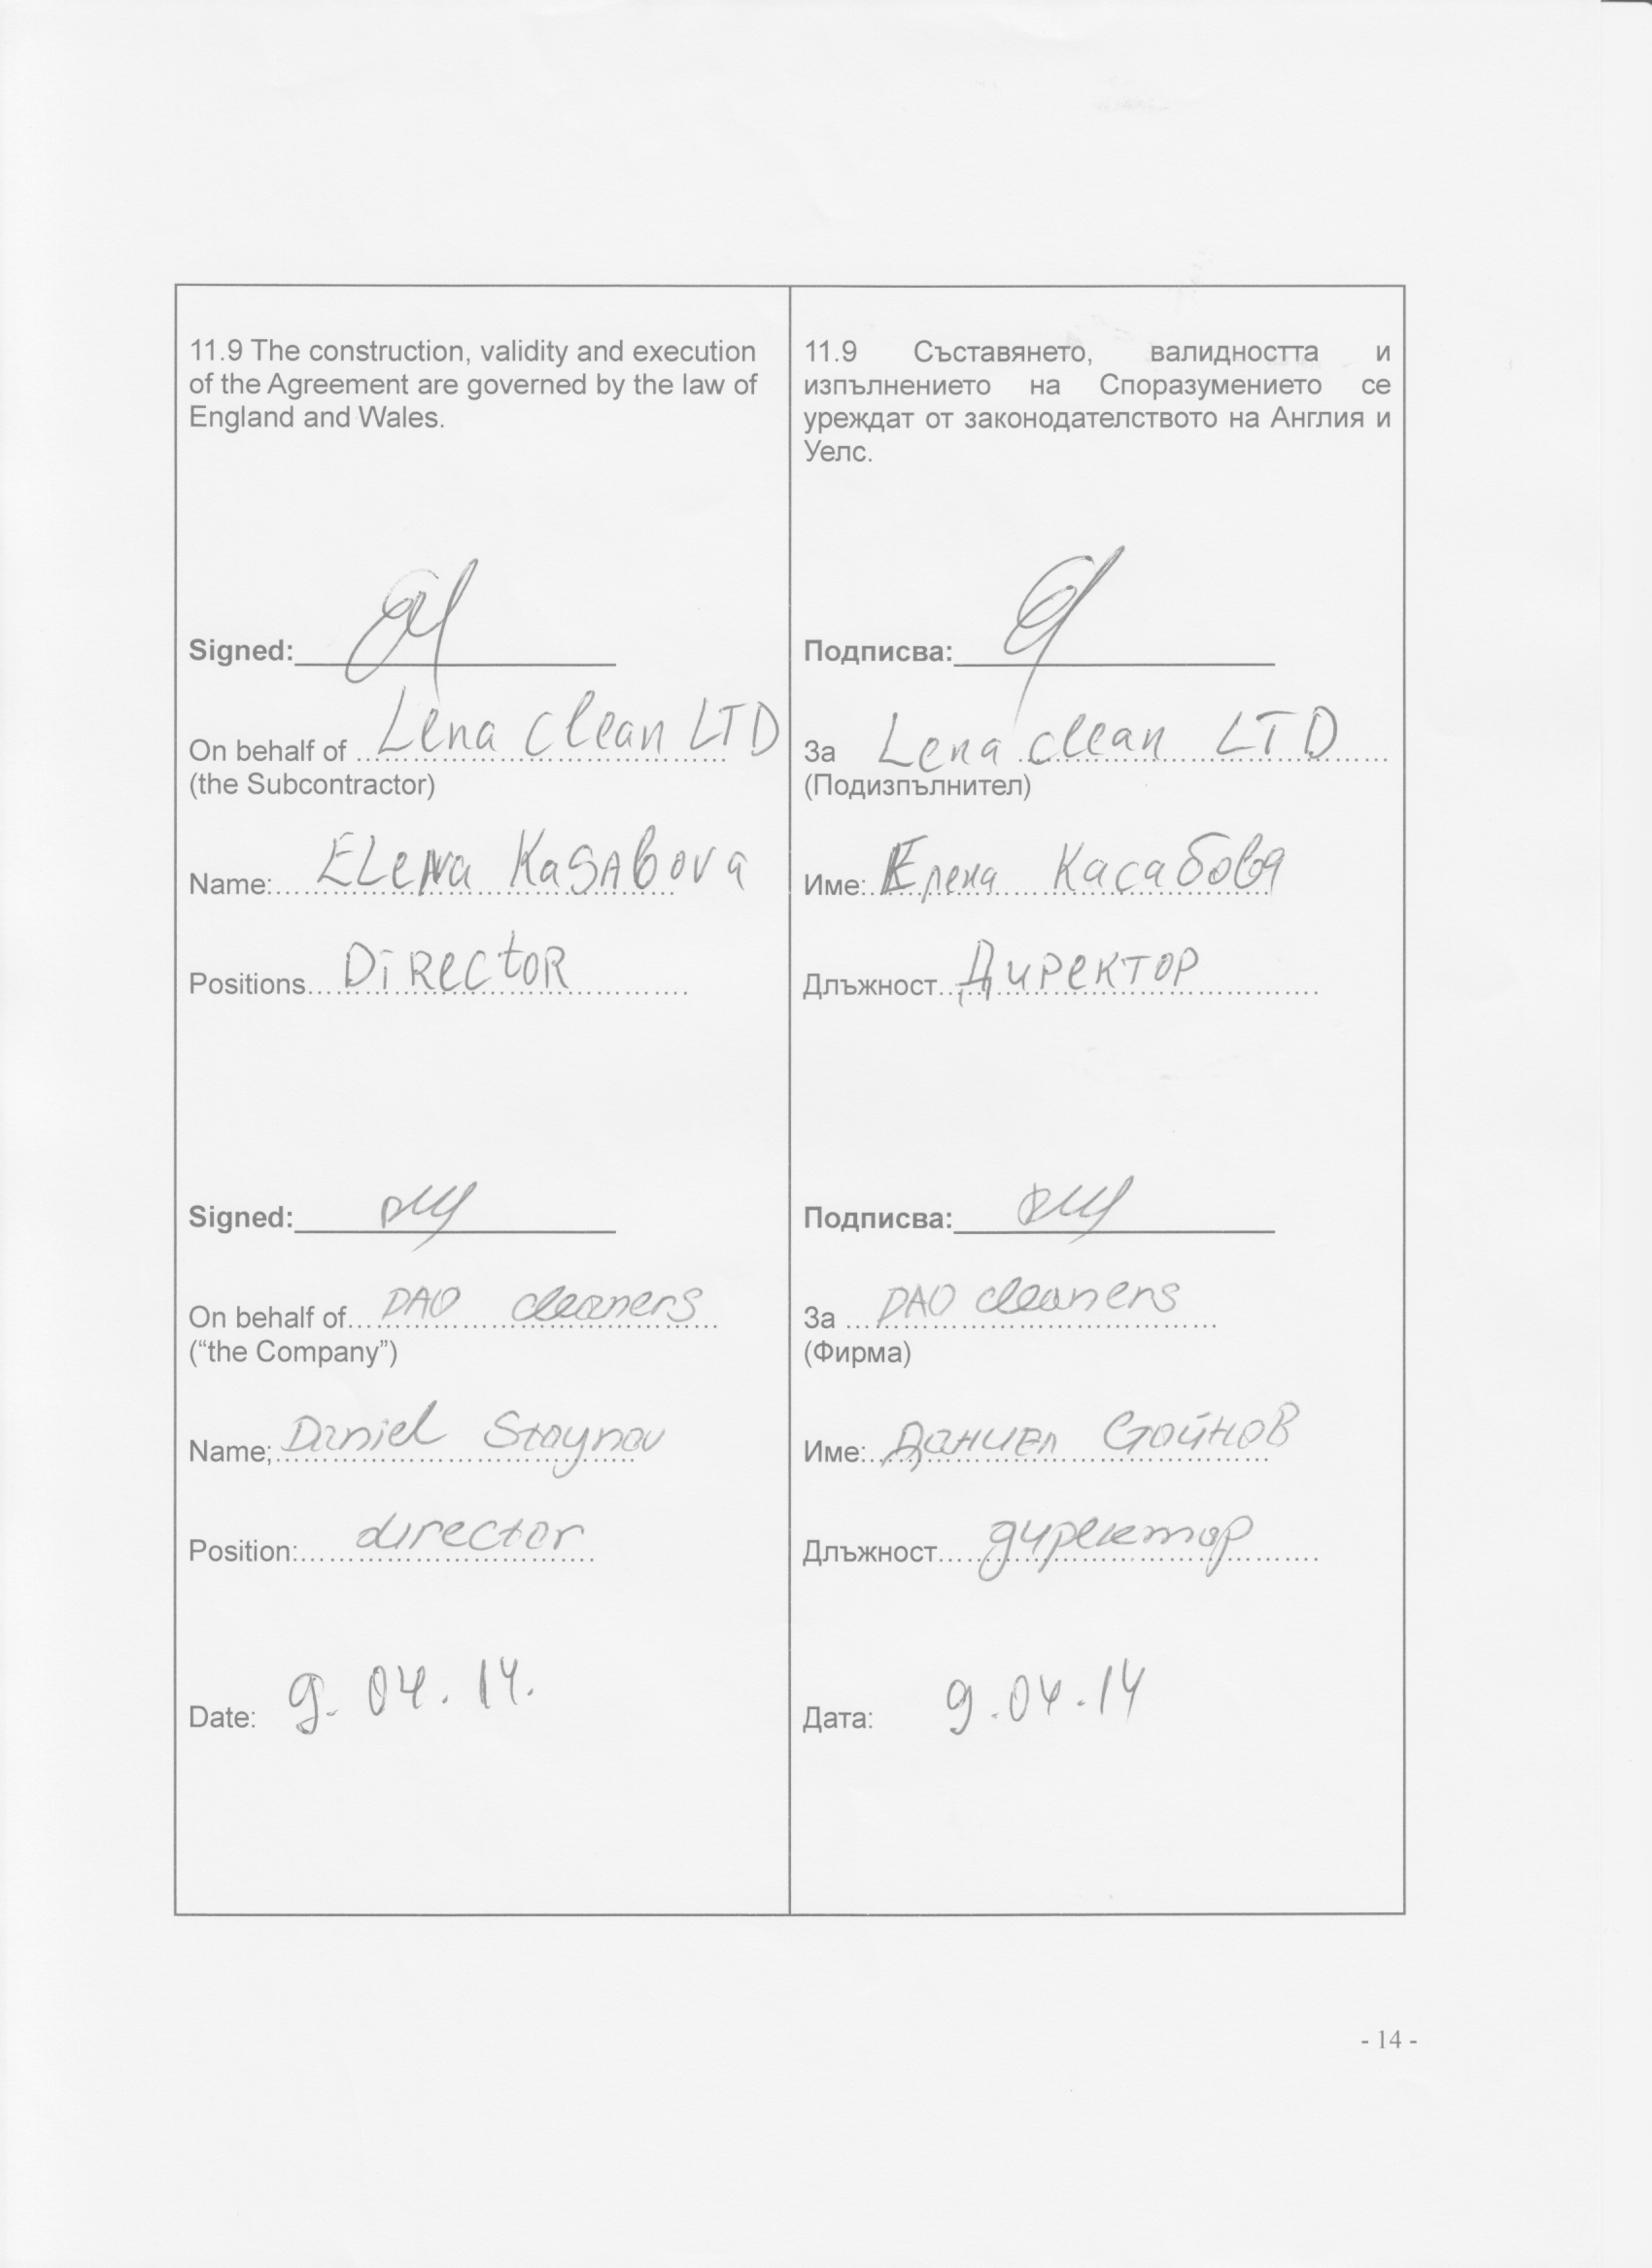 11.9 The construction, validity and execution
of the Agreement are governed by the law of
England and Wales.
Signed:
On behalf of Lena Clean LTD
(the Subcontractor)
Name: Elena Kasabova
Positions Director
Signed:
On behalf of DAO cleaners
(“the Company”)
Name; Daniel Stoynov
Position: director
Date: 9.04.14.
11.9 Съставянето, валидността и
изпълнението на Споразумението се
уреждат от законодателството на Англия и
Уелс.
Подписва:
За Lena clean LTD
(Подизпълнител)
Име: Елена Касабова
Длъжност Директор
Подписва:
За DAO cleaners
(Фирма)
Име: Даниел Стойнов
Длъжност директор
Дата: 9.04.14
- 14 -